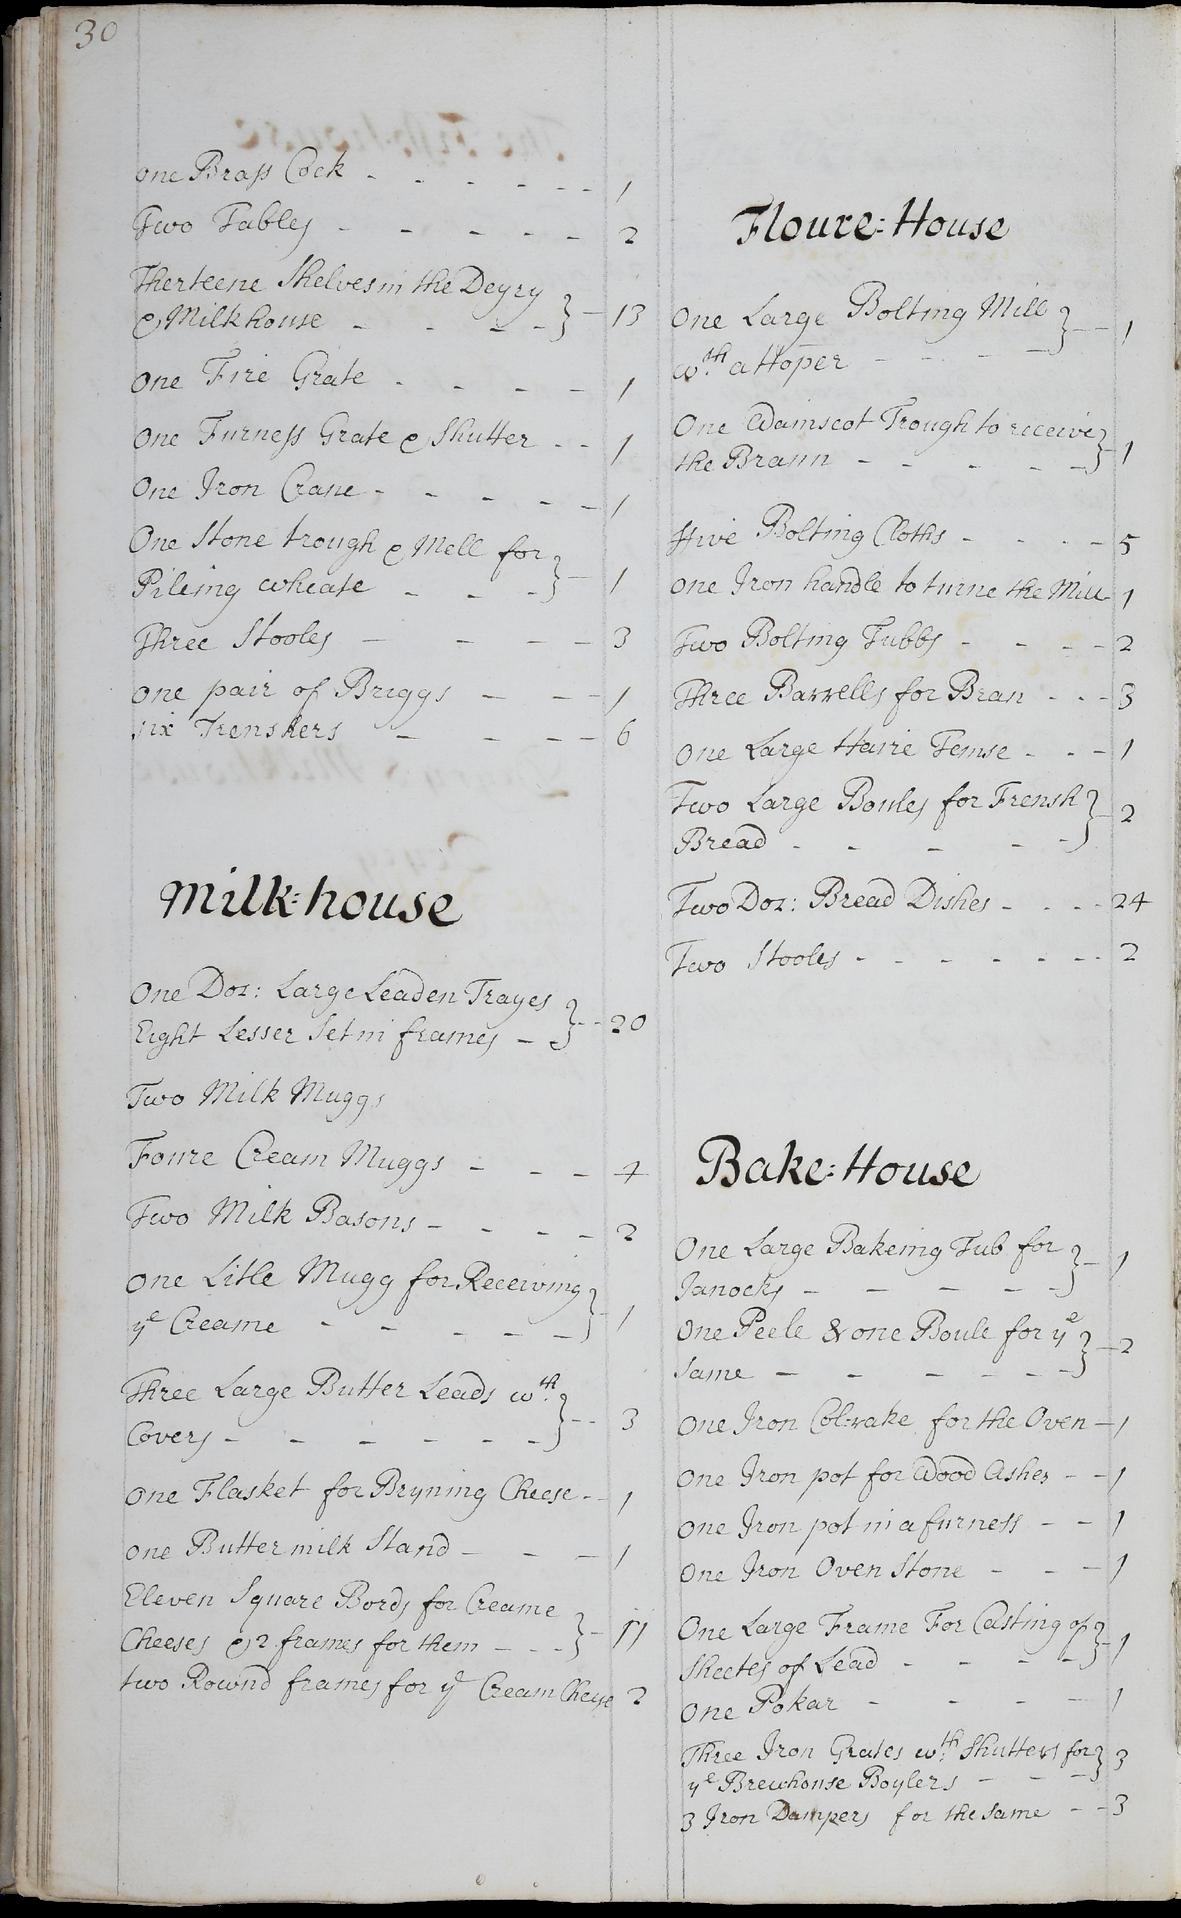 30
one Brass Cock - - - - - - 1
Two Tables - - - - - 2
Therteene Shelves in the Deyry
& Milkhouse - - - - } - 13
one Fire Grate - - - - 1
one Furness Grate & Shutter - - 1
One Iron Crane - - - - - 1
One Stone trough & Mell for
Pileing wheate - - - } - 1
Three Stooles - - - - 3
one pair of Briggs - - - 1
six Trenshers - - - - 6
Milk=house
One Doz: Large Leaden Trayes
Eight Lesser Set in frames - } - - 20
Two Milk Muggs
Foure Cream Muggs - - - 4
Two Milk Basons - - - - 2
One Litle Mugg for Receiving
ye Creame - - - - - } - 1
Three Large Butter Leads wth
Covers - - - - - - } - - 3
one Flasket for Bryning Cheese - - 1
one Buttermilk Stand - - - 1
Eleven Square Bords for Creame
Cheeses & 2 frames for them - - - } - 11
two Rownd frames for ye Cream Cheese 2
Floure=House
One Large Bolting Mill
wth a Hoper - - - - } - - 1
One Wainscot Trough to receive
the Brann - - - - - } - 1
Five Bolting Cloths - - - - 5
one Iron handle to turne the Mill 1
Two Bolting Tubbs - - - - 2
Three Barrells for Bran - - - 3
One Large Haire Temse - - - 1
Two Large Boules for Frensh
Bread - - - - - } - 2
Two Doz: Bread Dishes - - - - 24
Two Stooles - - - - - - - 2
Bake=House
One Large Bakeing Tub for
Janocks - - - - - } - 1
One Peele & one Boule for ye
same - - - - - - } - 2
one Iron Colrake for the Oven - 1
one Iron pot for Wood Ashes - - 1
one Iron pot in a furness - - 1
One Iron Oven Stone - - - 1
One Large Frame For Casting of
Sheetes of Lead - - - - } - 1
one Pokar - - - - 1
Three Iron Grates wth Shutters for
ye Brewhouse Boylers - - - } 3
3 Iron Dampers for the same - - 3